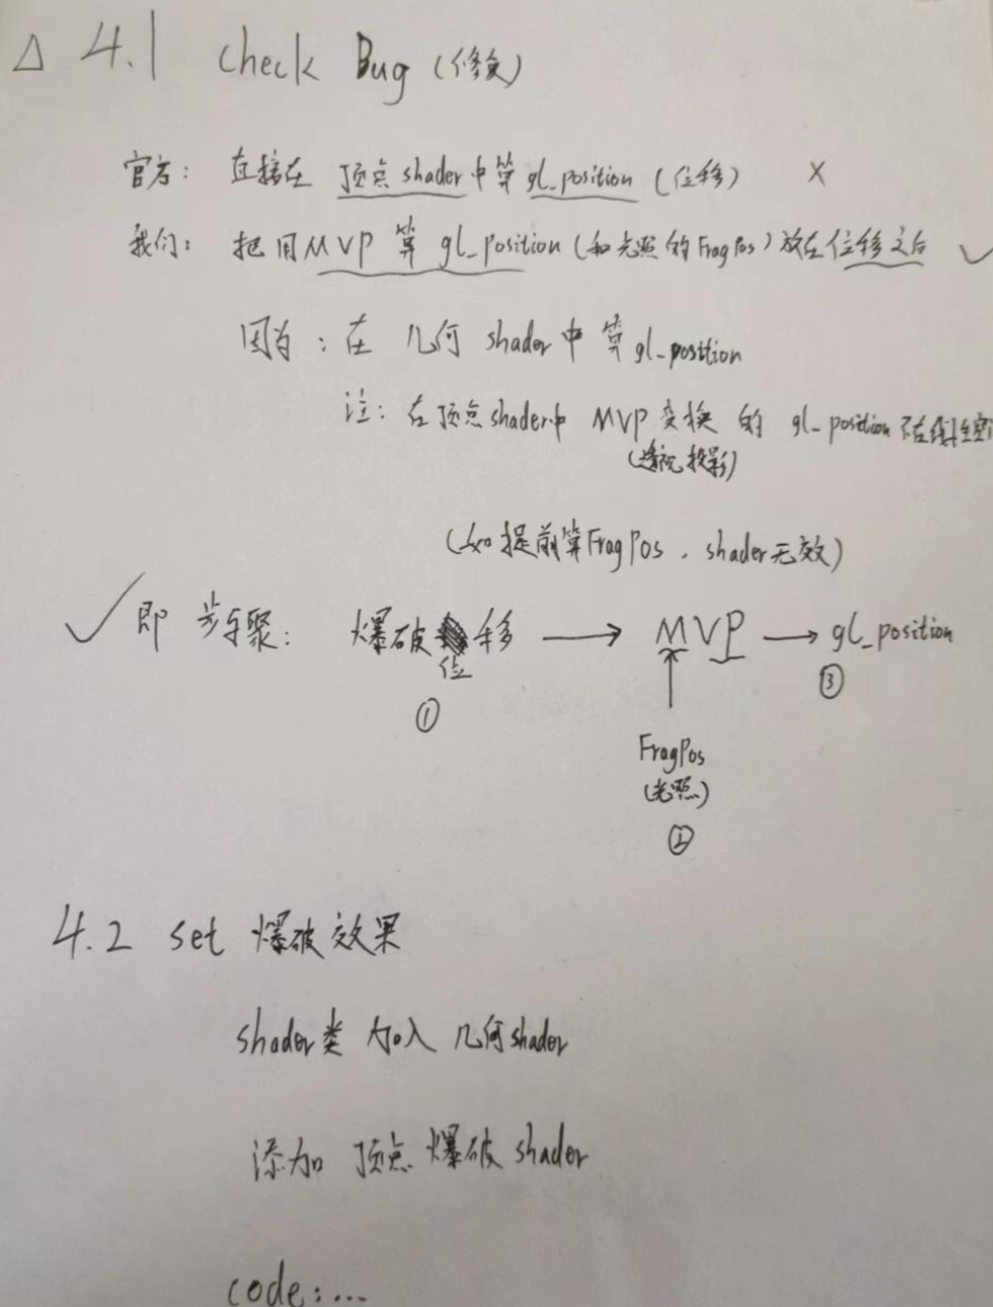 △ 4.1 check Bug (修复)
官方: 直接在 顶点 shader 中算 gl_position (位移) ×
我们: 把用 MVP 算 gl_position (和光照的 FragPos) 放在位移之后 ✓
因为: 在 几何 shader 中 算 gl_position
注: 在顶点shader中 MVP 变换 的 gl_position 不在
(透视投影)
(如提前算FragPos, shader无效)
✓ 即 步骤: 爆破 位移 → MVP → gl_position
① ③
↑
FragPos
(光照)
②
4.2 set 爆破效果
shader类 加入 几何shader
添加 顶点 爆破 shader
code: ...